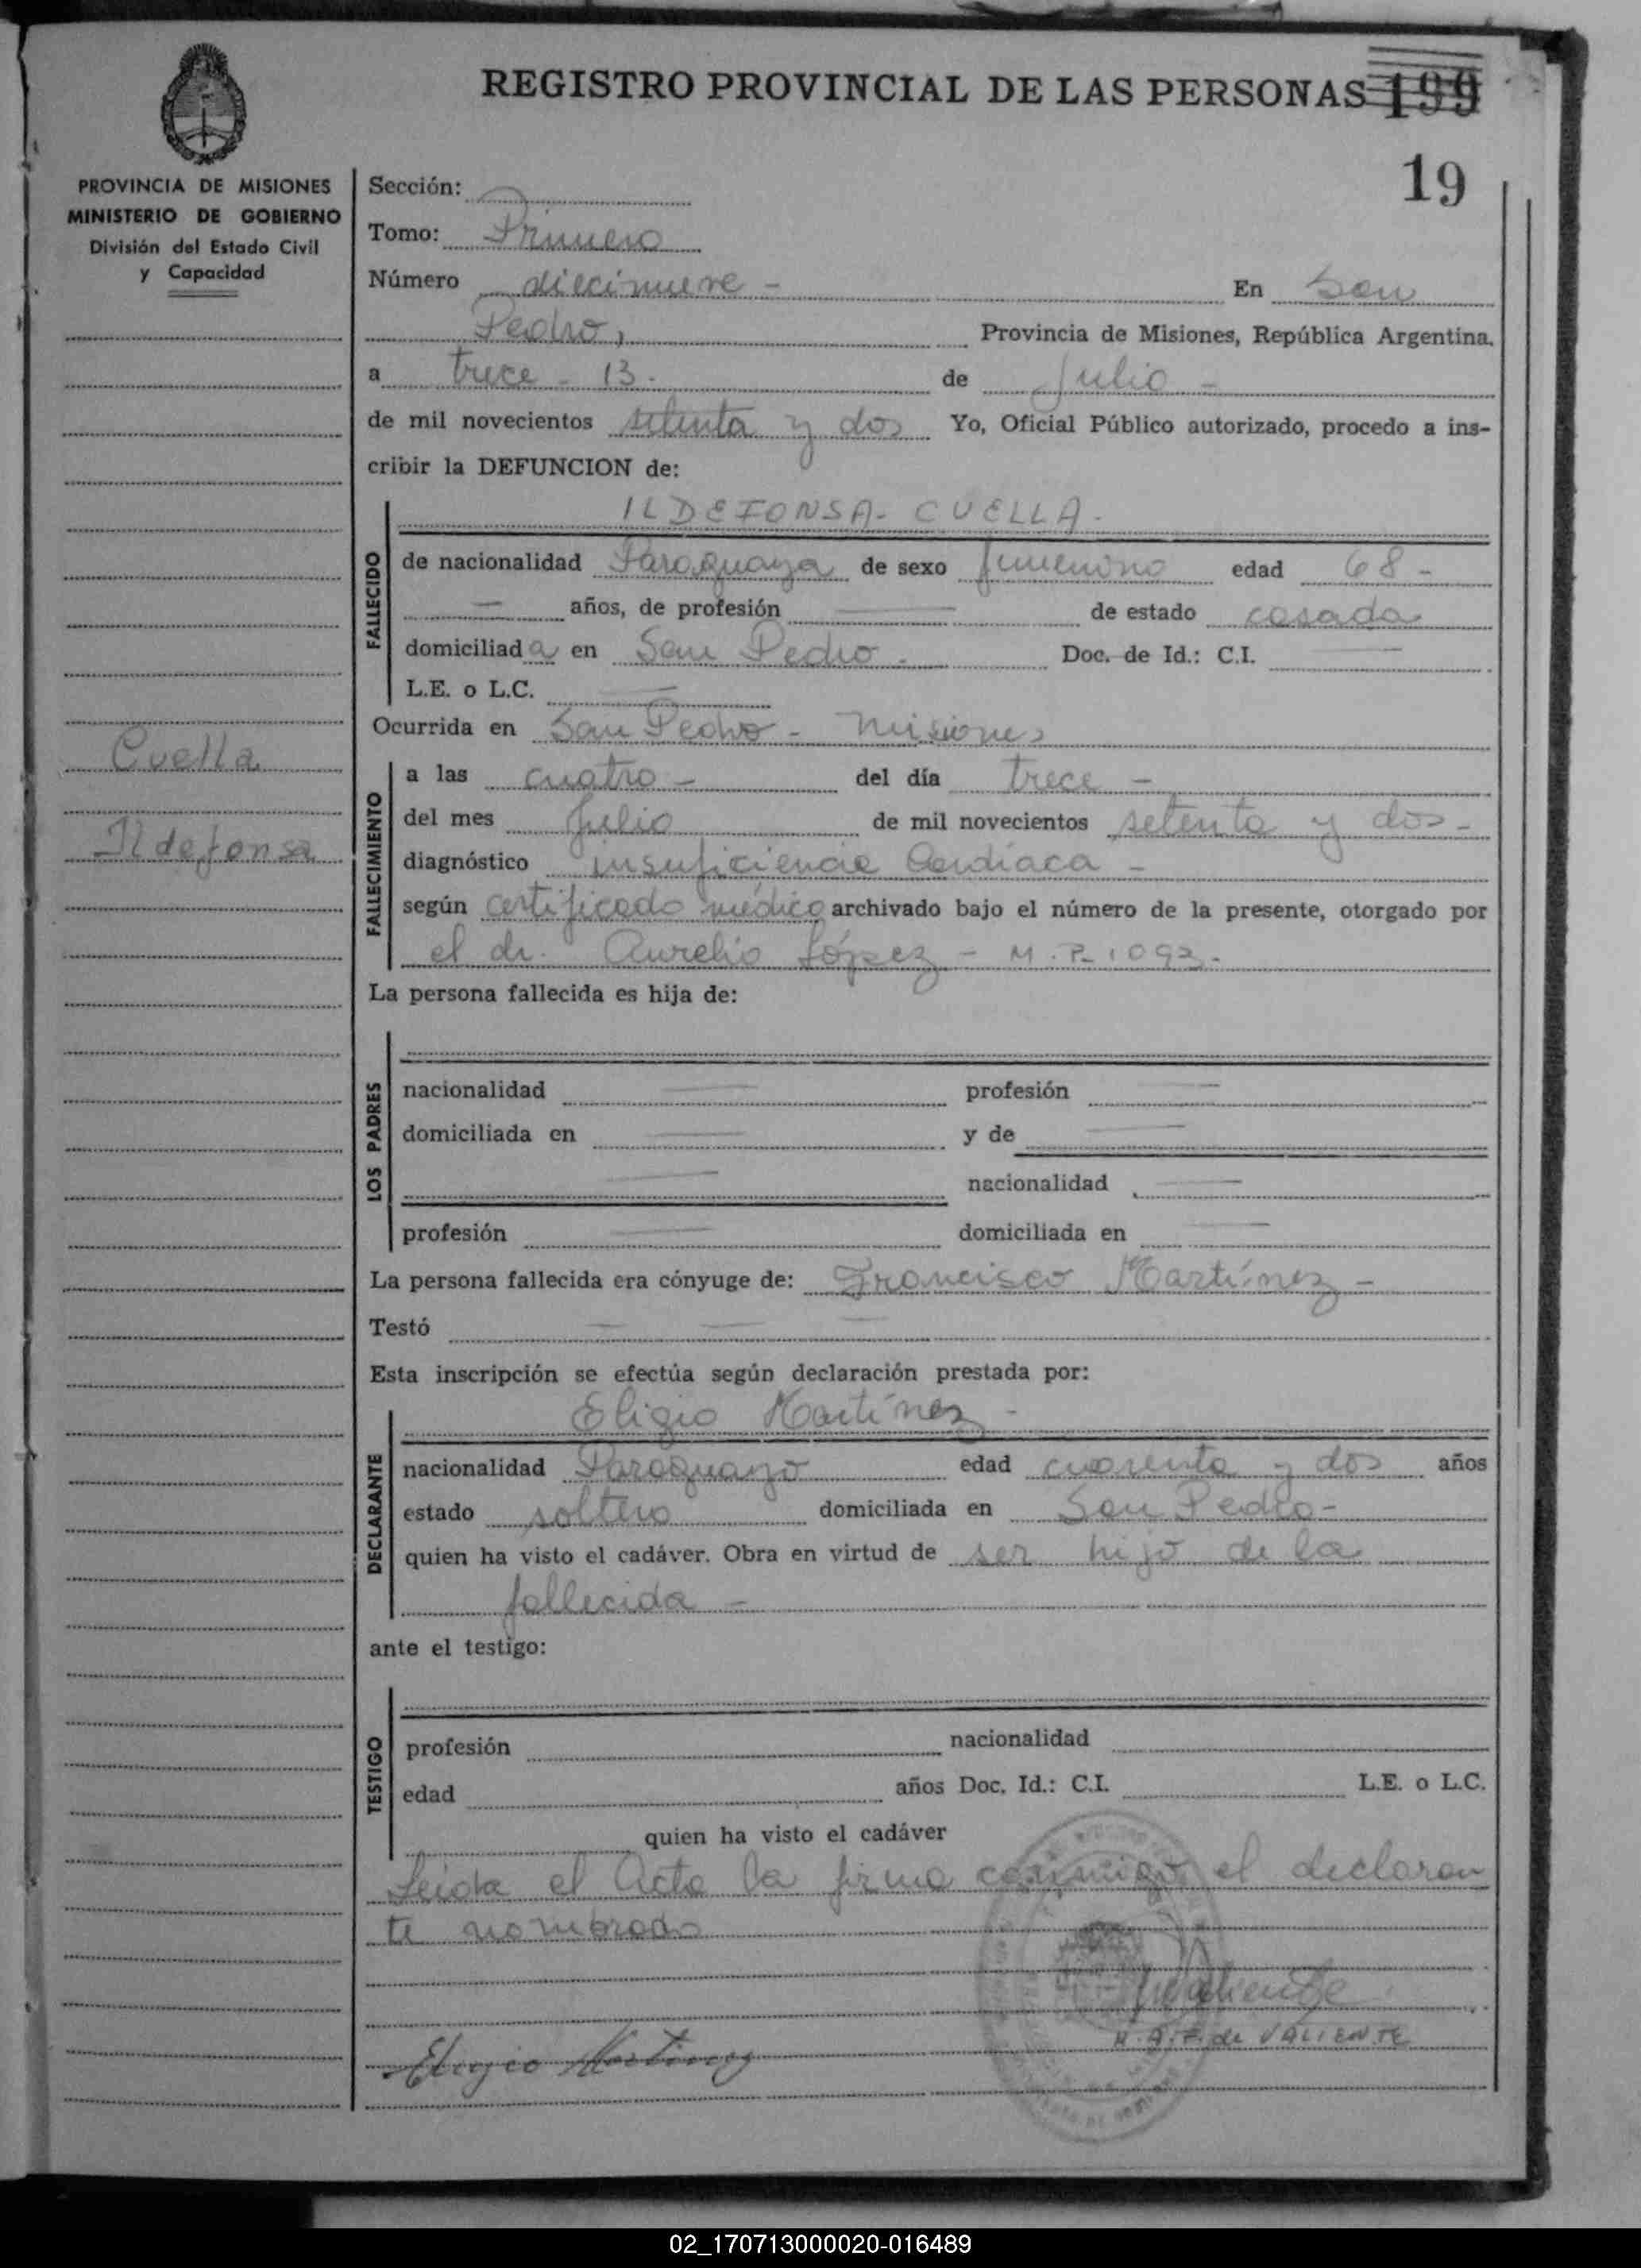 REGISTRO PROVINCIAL DE LAS PERSONAS 199
19
PROVINCIA DE MISIONES
MINISTERIO DE GOBIERNO
División del Estado Civil
y Capacidad
Cuella
Ildefonsa
Sección:
Tomo: Primero
Número diecinueve - En San
Pedro, Provincia de Misiones, República Argentina.
a trece - 13. de Julio -
de mil novecientos setenta y dos Yo, Oficial Público autorizado, procedo a ins-
cribir la DEFUNCION de:
ILDEFONSA - CUELLA -
FALLECIDO
de nacionalidad Paraguaya de sexo femenino edad 68 -
— años, de profesión — de estado casada
domiciliada en San Pedro. Doc. de Id.: C.I. —
L.E. o L.C. —
Ocurrida en San Pedro - Misiones
FALLECIMIENTO
a las cuatro - del día trece -
del mes Julio de mil novecientos setenta y dos -
diagnóstico insuficiencia Cardíaca -
según certificado médico archivado bajo el número de la presente, otorgado por
el dr. Aurelio López - M.P. 1092.
La persona fallecida es hija de:
LOS PADRES
nacionalidad — profesión —
domiciliada en — y de —
— nacionalidad —
profesión — domiciliada en —
La persona fallecida era cónyuge de: Francisco Martínez -
Testó — — —
Esta inscripción se efectúa según declaración prestada por:
Eligio Martínez -
DECLARANTE
nacionalidad Paraguayo edad cuarenta y dos años
estado soltero domiciliada en San Pedro -
quien ha visto el cadáver. Obra en virtud de ser hijo de la
fallecida -
ante el testigo:
TESTIGO
profesión nacionalidad
edad años Doc. Id.: C.I. L.E. o L.C.
quien ha visto el cadáver
Leida el Acta la firma conmigo el declaran
te nombrado
Valiente
de VALIENTE
Eligio Martinez
02_170713000020-016489